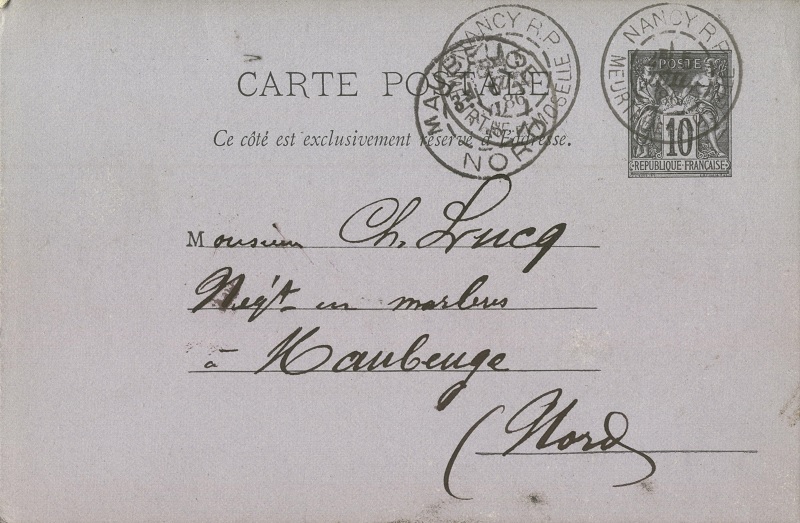 CARTE POSTALE
Ce côté est exclusivement réservé à l'adresse.
NANCY R.P.
MEURTHE
NANCY R.P.
MOSELLE
MAUBEUGE
NORD
POSTE
10
REPUBLIQUE FRANÇAISE
Monsieur Ch. Lucq
Négt en marbres
à Maubeuge
(Nord)